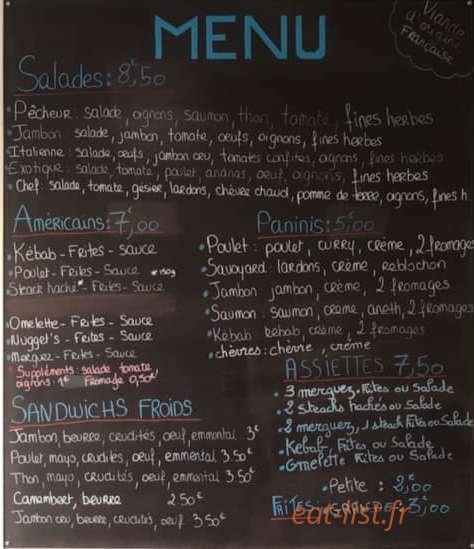 MENU
Viande
d'origine
Française
Salades: 8€,50
Pêcheur: salade, ognons, saumon, thon, tomate, fines herbes
Jambon salade, jambon, tomate, oeufs, oignons, fines herbes
Italienne: salade, oeufs, jambon cru, tomates confites, ognons, fines herbes
Exotique: salade, tomate, poulet, ananas, oeuf, oignons, fines herbes
Chef: salade, tomate, gésier, lardons, chèvre chaud, pomme de terre, ognons, fines h
Américains: 7€,00
Kébab - Frites - sauce
Poulet - Frites - Sauce
Steack haché* - Frites - Sauce
Omelette - Frites - Sauce
Nugget's - Frites - Sauce
Merguez - Frites - Sauce
Suppléments: salade tomate
oignons: 1€ Fromage 0,50€!
Paninis: 5€,00
Poulet: poulet, curry, crème, 2 fromages
Savoyard: lardons, crème, reblochon
Jambon: jambon, crème, 2 fromages
Saumon: saumon, crème, aneth, 2 fromages
Kébab: kebab, crème, 2 fromages
chèvres: chèvre, crème
ASSIETTES 7,50
3 merguez, Frites ou Salade
2 steacks hachés ou Salade
2 merguez, 1 steack Frites ou Salade
Kebab Frites ou Salade
Omelette Frites ou Salade
SANDWICHS FROIDS
Jambon, beurre, crudités, oeuf, emmental 3€
Poulet, mayo, crudités, oeuf, emmental 3.50€
Thon, mayo, crudités, oeuf, emmental 3.50€
Camembert, beurre 2.50€
Jambon cru, beurre, crudités, oeuf 3.50€
Petite: 2€,00
FRITES: GRANDE: 3€,00
eat-list.fr